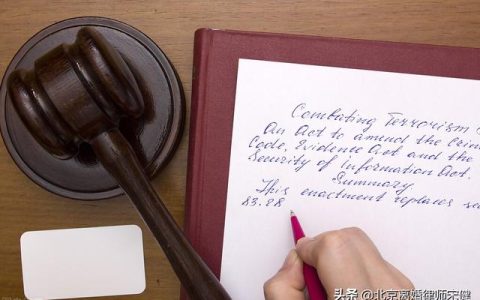 Combating Terrorism
An Act to amend the Crim
Code, Evidence Act and the
Security of Information Act.
Summary
This enactment replaces sec
83.28
头条 @北京离婚律师宋健